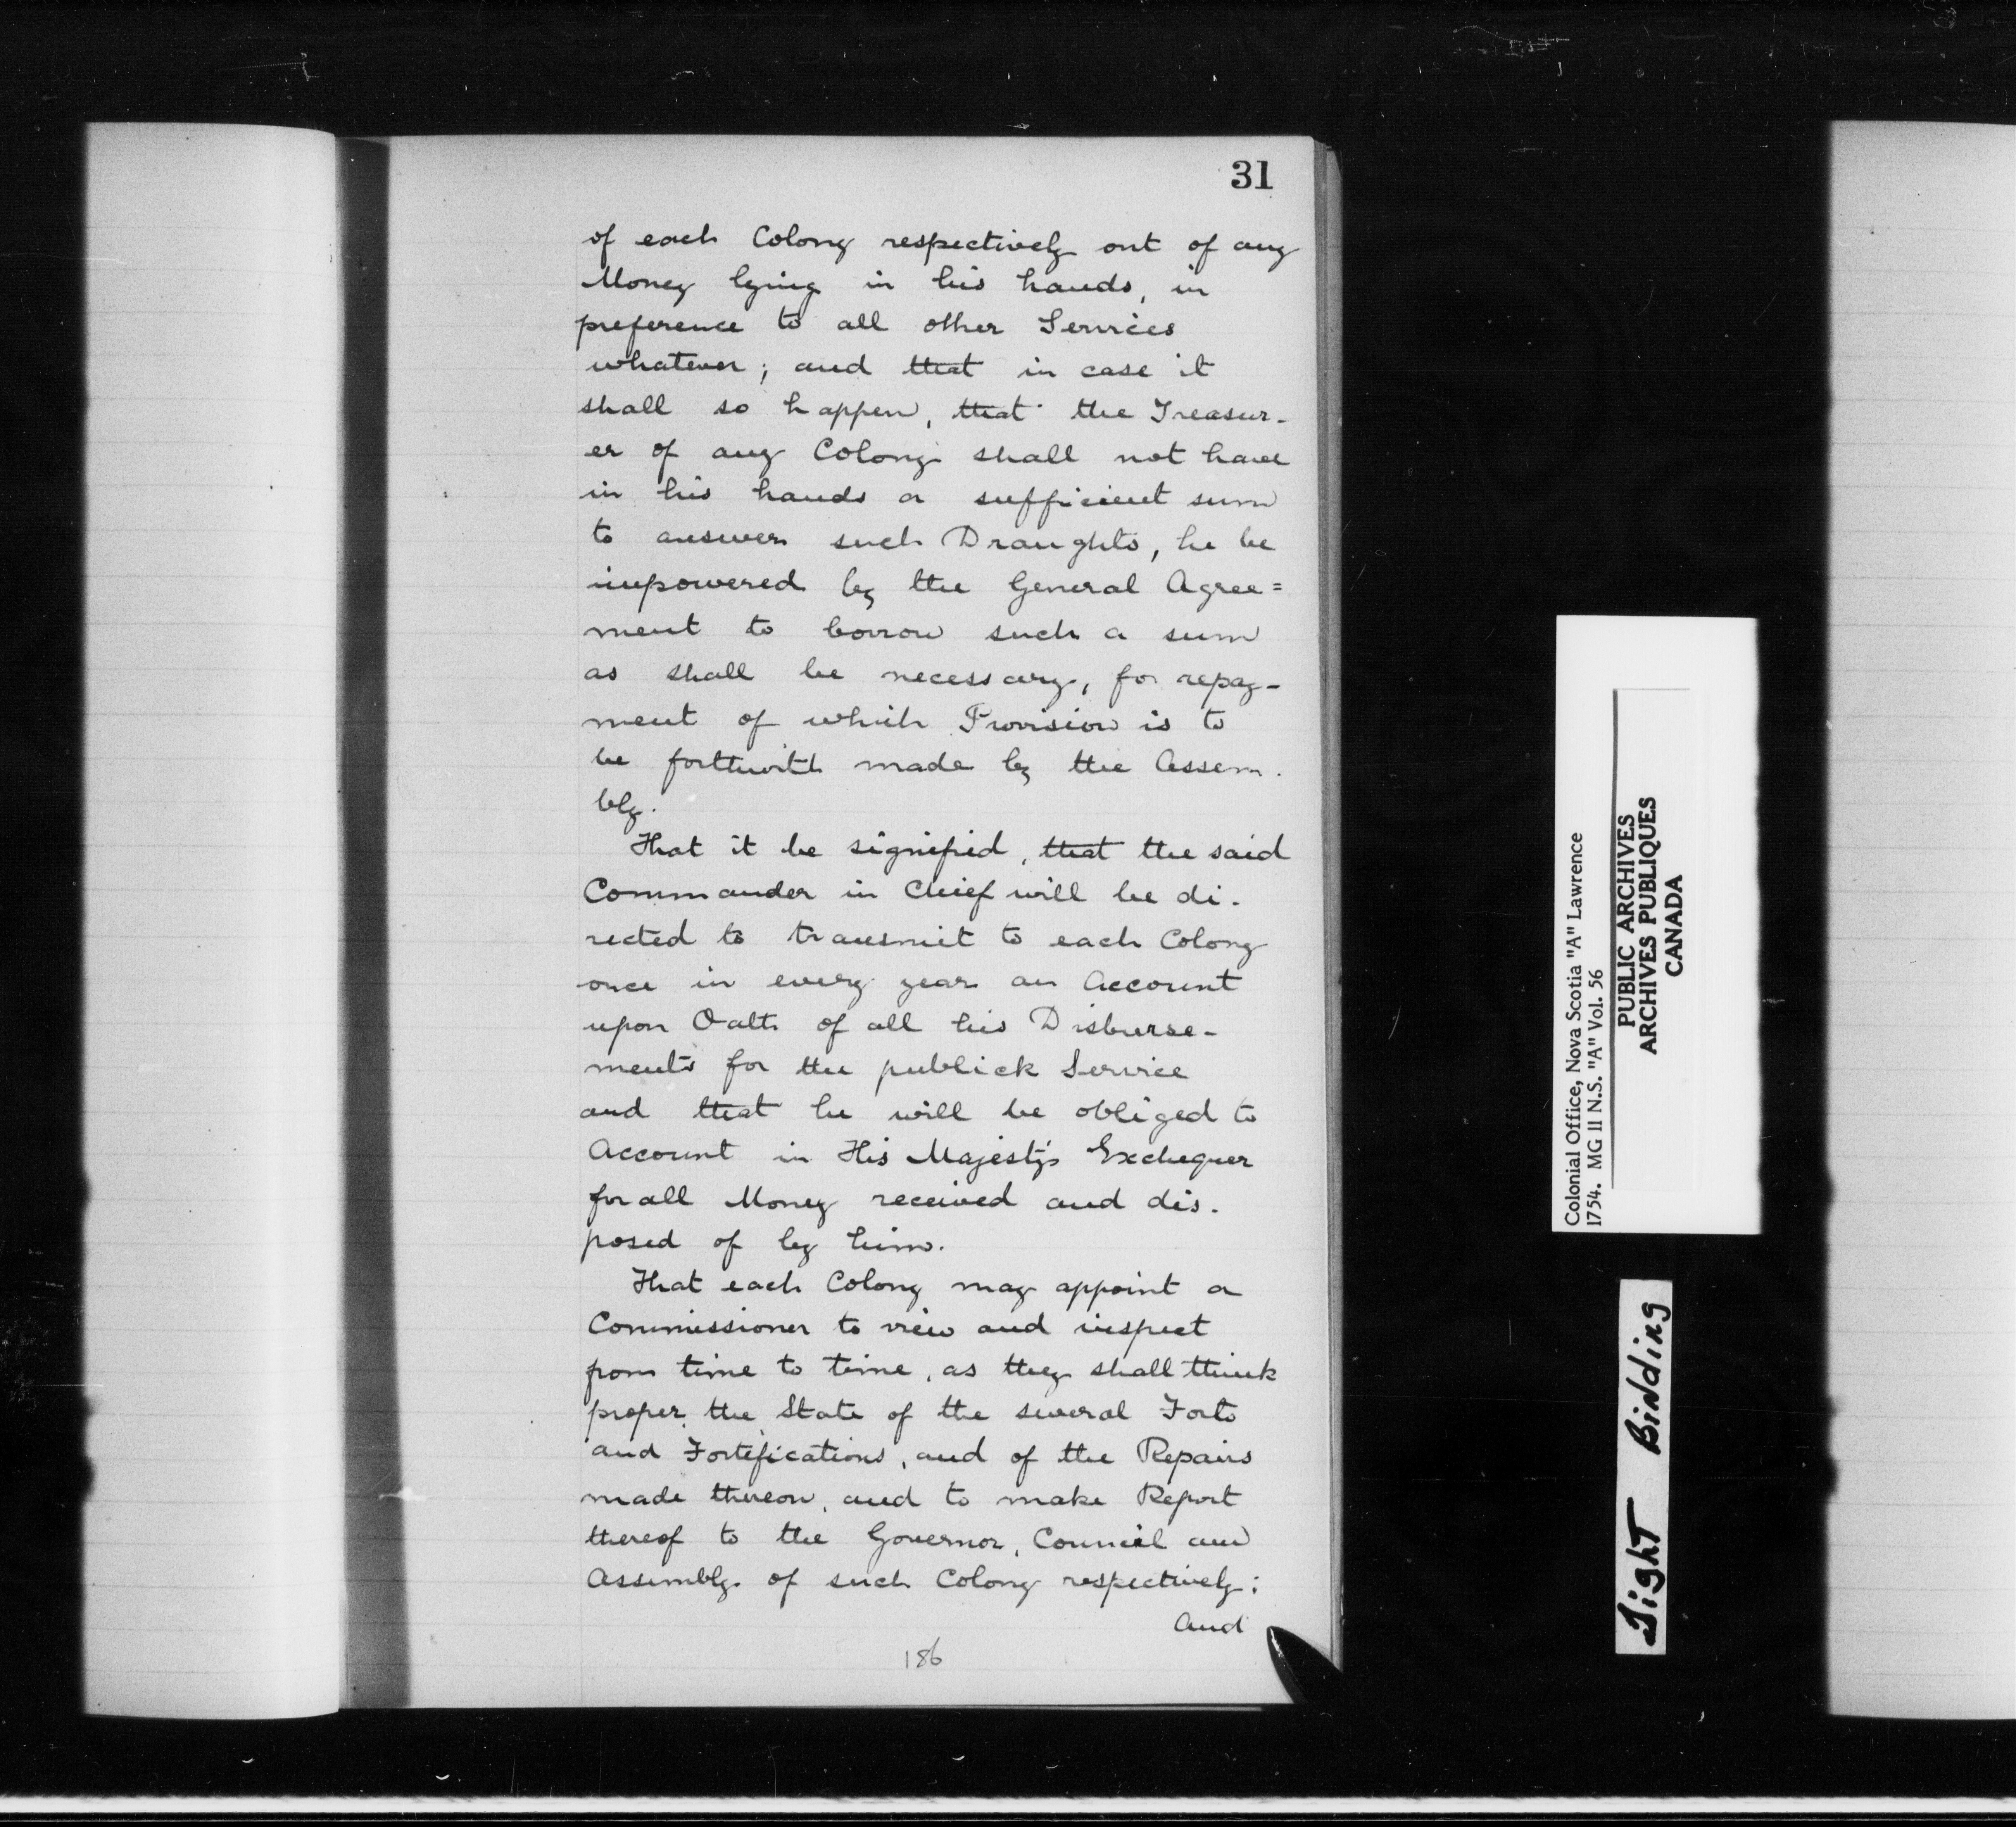 31
of each Colony respectively out of any
Money lying in his hands, in
preference to all other Services
whatever; and that in case it
shall so happen, that the Treasur-
er of any Colony shall not have
in his hands a sufficient sum
to answer such Draughts, he be
impowered by the General Agree=
ment to borrow such a sum
as shall be necessary, for repay-
ment of which Provision is to
be forthwith made by the Assem-
bly.
That it be signified, that the said
Commander in Chief will be di-
rected to transmit to each Colony
once in every year an Account
upon Oath of all his Disburse-
ments for the publick Service
and that he will be obliged to
Account in His Majesty's Exchequer
for all Money received and dis-
posed of by him.
That each Colony may appoint a
Commissioner to view and inspect
from time to time, as they shall think
proper, the State of the several Forts
and Fortifications, and of the Repairs
made thereon, and to make Report
thereof to the Governor, Council and
Assembly of such Colony respectively;
And
186
Colonial Office, Nova Scotia "A" Lawrence
1754. MG 11 N.S. "A" Vol. 56
PUBLIC ARCHIVES
ARCHIVES PUBLIQUES
CANADA
Tight Binding